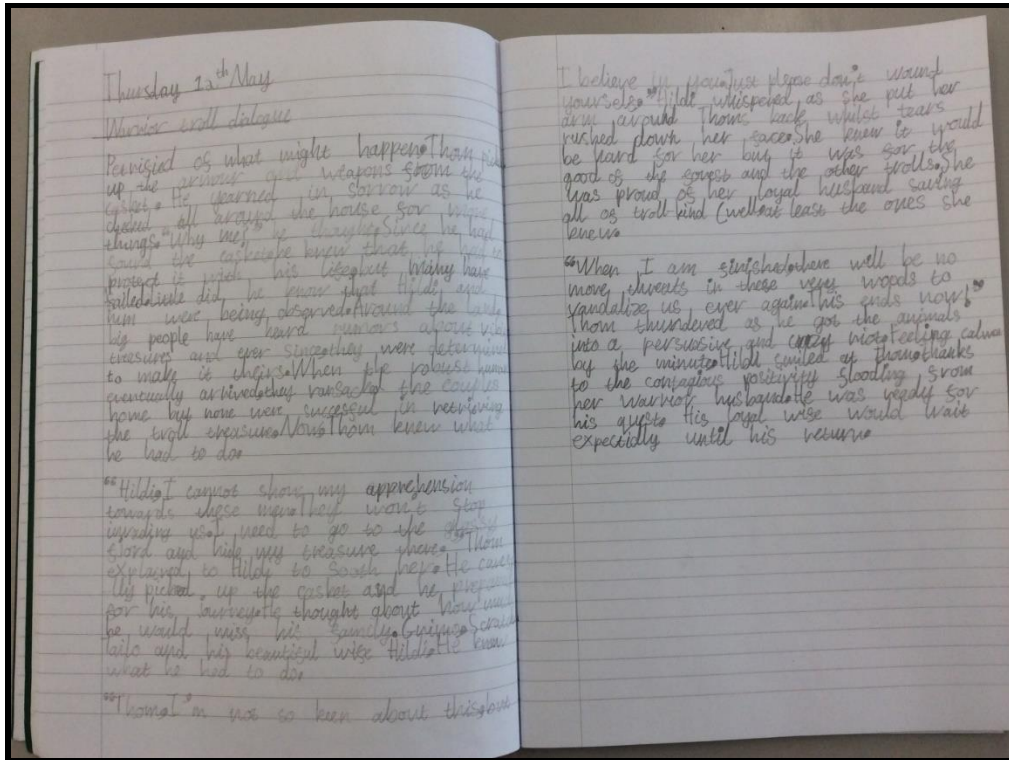 Thursday 12th May
Warrior troll dialogue
Petrisied of what might happen. Thom pick
up the armour and weapons from the
casket. He yearned in sorrow as he
all around the house for more
things. "Why me?" he thought. Since he had
found the casket, he knew that he had to
protect it with his life, but many have
failed. Little did he know that Hildi and
him were being observed. Around the lands
big people have heard rumors about
treasures and ever since, they were determined
to make it theirs. When the robust humans
eventually arrived, they ransacked the couples
home by none were sucessful in retrieving
the troll treasure. Now, Thom knew what
he had to do.
"Hildi, I cannot show my apprehension
towards these men. They won't stop
invading us. I need to go to the
fjord and hide my treasure there." Thom
explained to Hildi to Sooth her. He caref
lly picked up the casket and he prepared
for his journey. He thought about how much
he would miss his family.
and his beautiful wife Hildi. He knew
what he had to do.
"Thom, I'm not so keen about this, but
I believe in you. Just please don't wound
yourself." Hildi whispered as she put her
arm around Thoms back whilst tears
rushed down her face. She knew it would
be hard for her but it was for the
good of the forest and the other trolls. She
was proud of her loyal husband saving
all of troll-kind (well, at least the ones she
knew.
"When I am finished, there will be no
more threats in these very woods to
vandalize us, ever again. This ends now!"
Thom thundered as he got the animals
into a persuasive and crazy riot. Feeling calmer
by the minute, Hildi smiled at Thom, thanks
to the contagious positivity flooding from
her warrior husband. He was ready for
his quest. His loyal wife would wait
expectidly until his return.